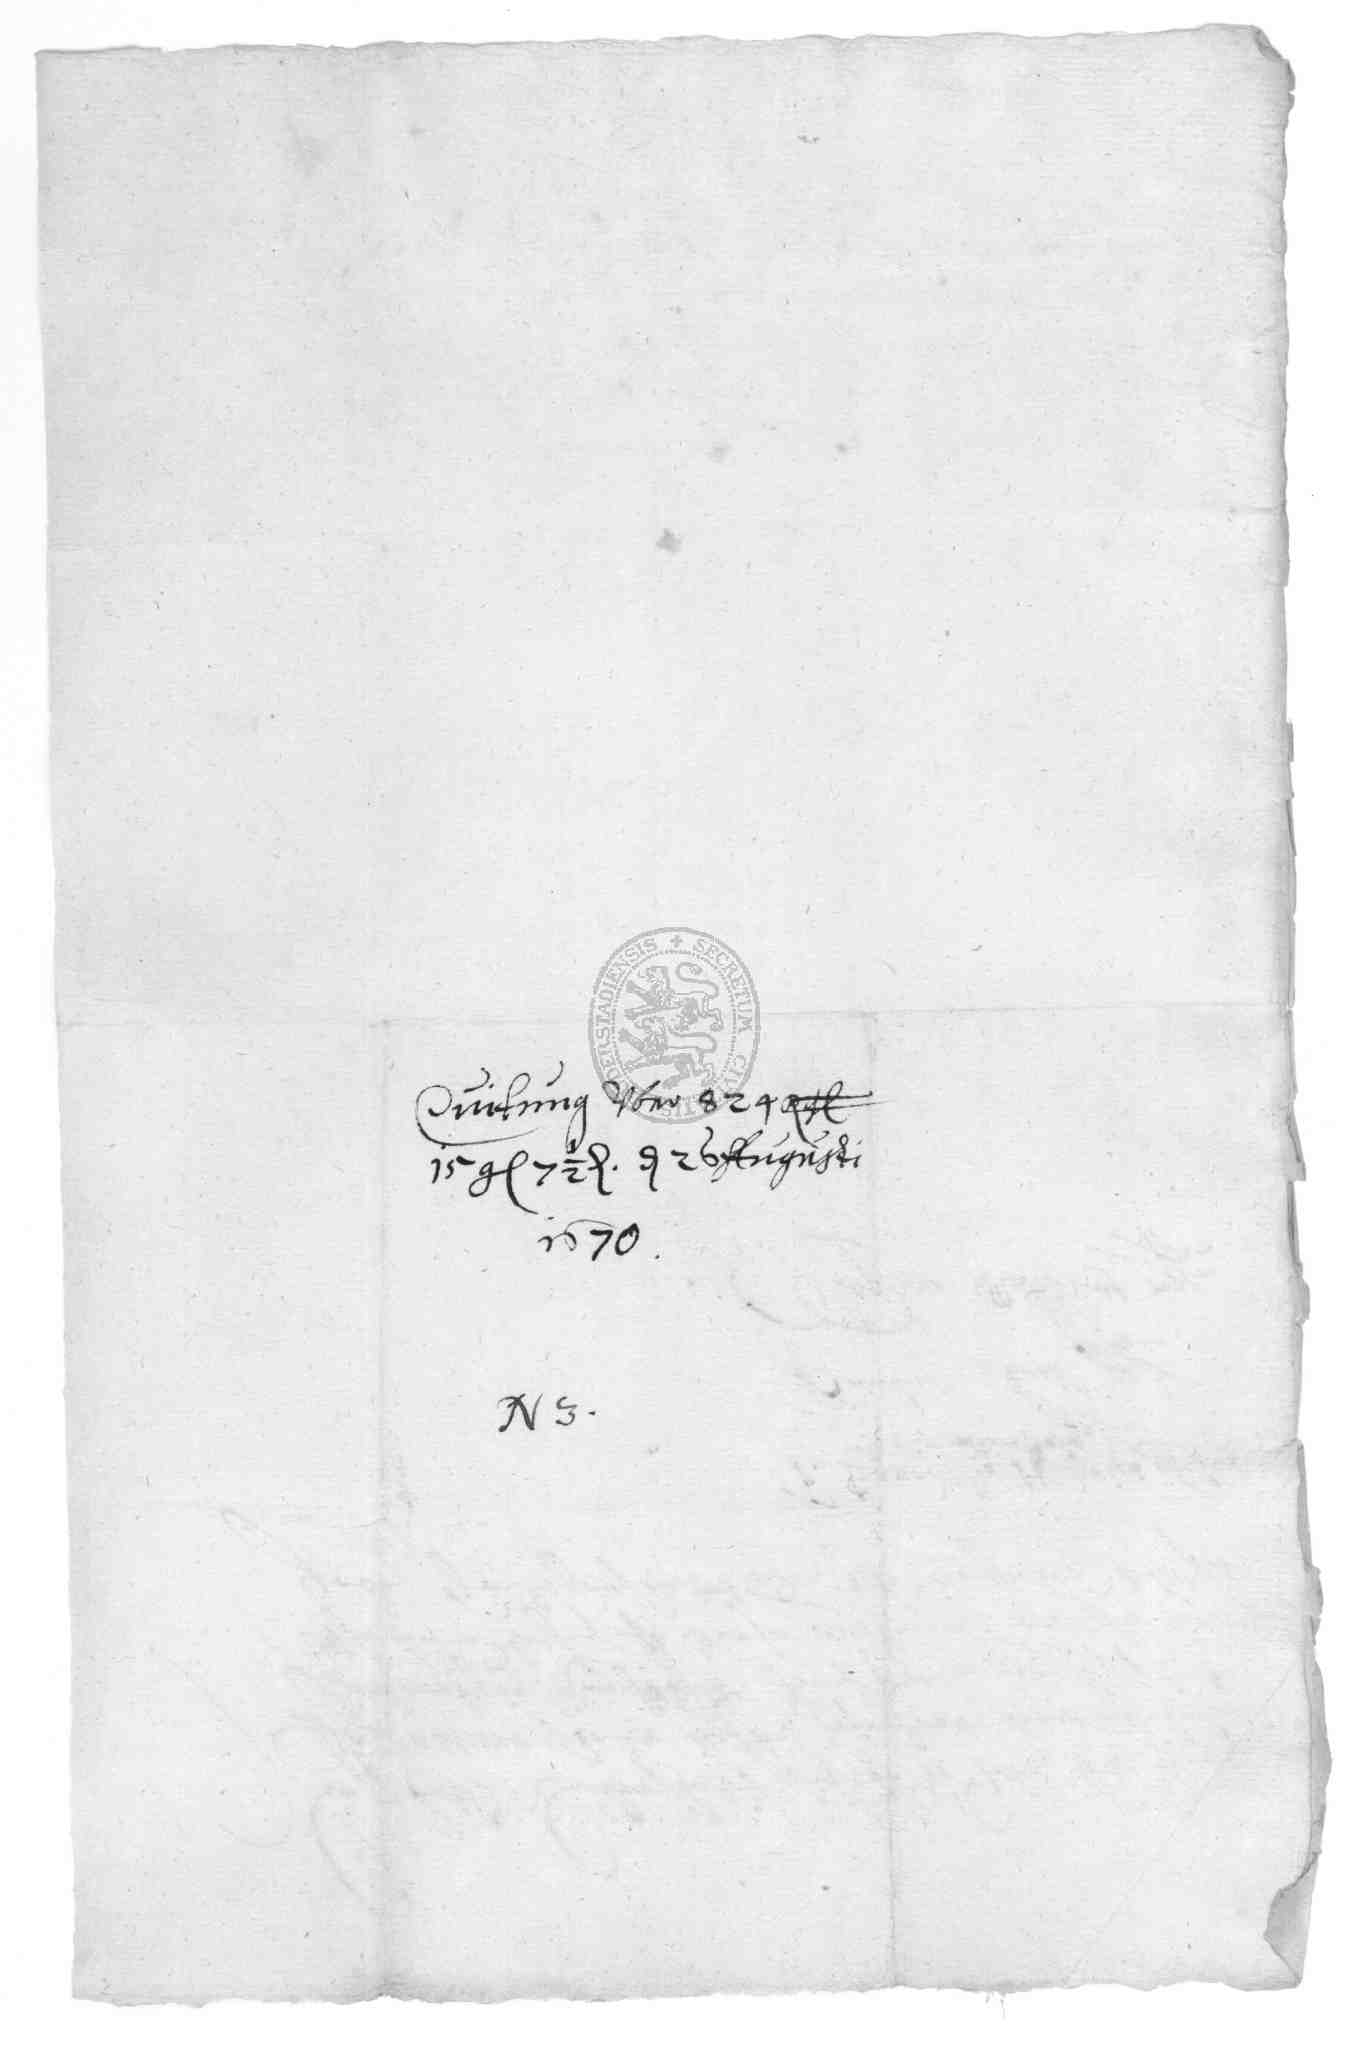 SECRETUM CIVI DERSTADIENSIS
Quitung Vber 824
15 gl 7½ ₰. d 26 Augusti
1670.
N 3.